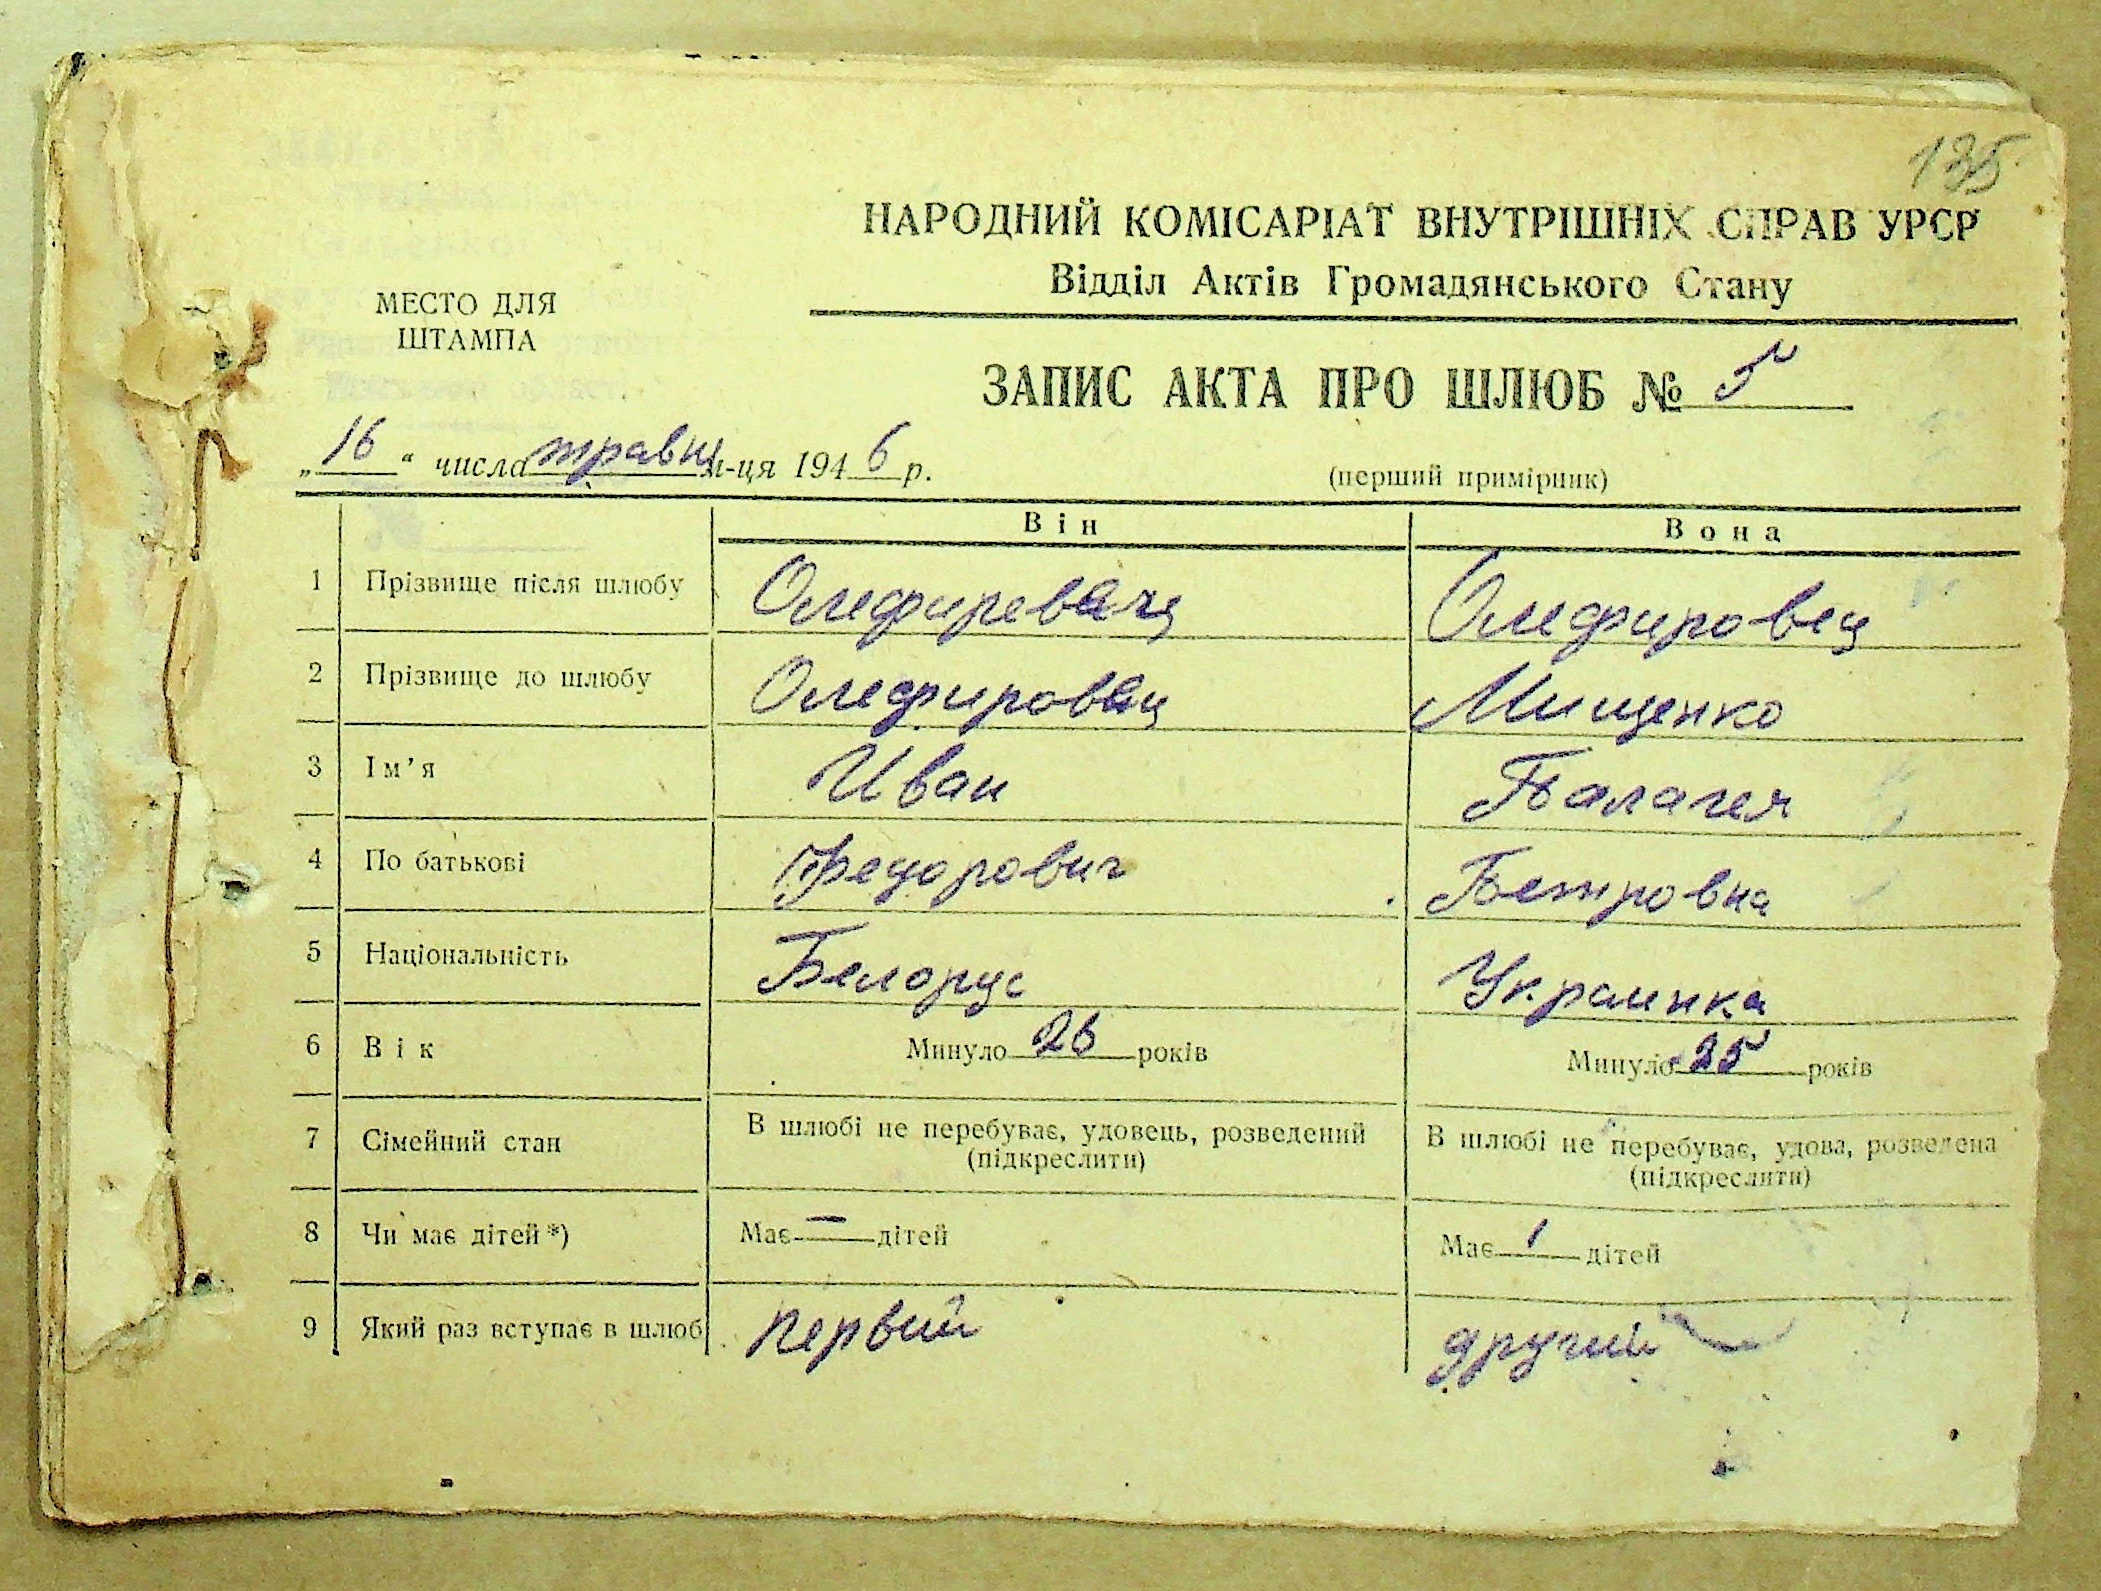 135
НАРОДНИЙ КОМІСАРІАТ ВНУТРІШНІХ СПРАВ УРСР
Відділ Актів Громадянського Стану
МЕСТО ДЛЯ
ШТАМПА
ЗАПИС АКТА ПРО ШЛЮБ № 5
„16“ числа травня м-ця 1946 р.
(перший примірник)
Він Вона
1 Прізвище після шлюбу Олефировец Олефировец
2 Прізвище до шлюбу Олефировец Мищенко
3 Ім’я Иван Палагея
4 По батькові Федорович Петровна
5 Національність Белорус Украинка
6 Вік Минуло 26 років Минуло 25 років
7 Сімейний стан В шлюбі не перебуває, удовець, розведений (підкреслити) В шлюбі не перебуває, удова, розведена (підкреслити)
8 Чи має дітей*) Має — дітей Має 1 дітей
9 Який раз вступає в шлюб первий другий